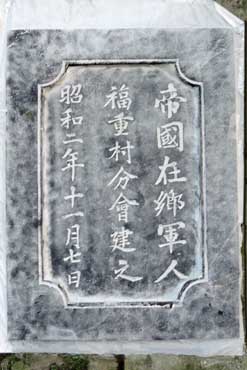 帝國在郷軍人
福重村分會建之
昭和二年十一月七日